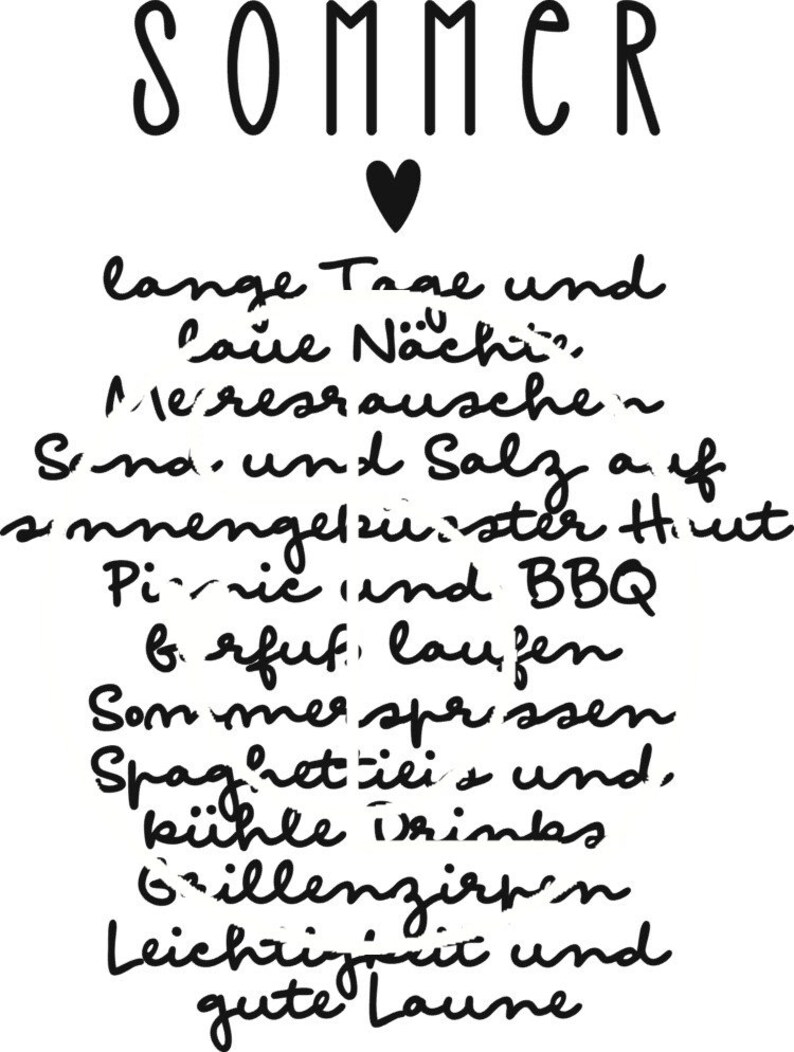 SOMMER
lange Tage und
laue Nächte
Meeresrauschen
Sand und Salz auf
sonnengeküsster Haut
Picnic und BBQ
barfuß laufen
Sommersprossen
Spaghettieis und
kühle Drinks
Grillenzirpen
Leichtigkeit und
gute Laune